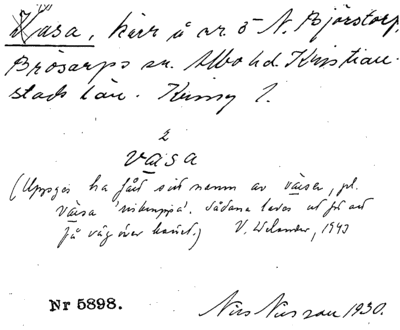 Vasa, kärr å nr 5 N. Björstorp,
Brösarps sn. Albo hd. Kristian-
stads län.
2
vasa
(Uppges ha fått sitt namn av vasar, pl.
vasa 'risknippa'. Sådana lades ut för att
få väg över kärret.) V. Welander, 1943
Nr 5898.
Nils Nilsson 1930.